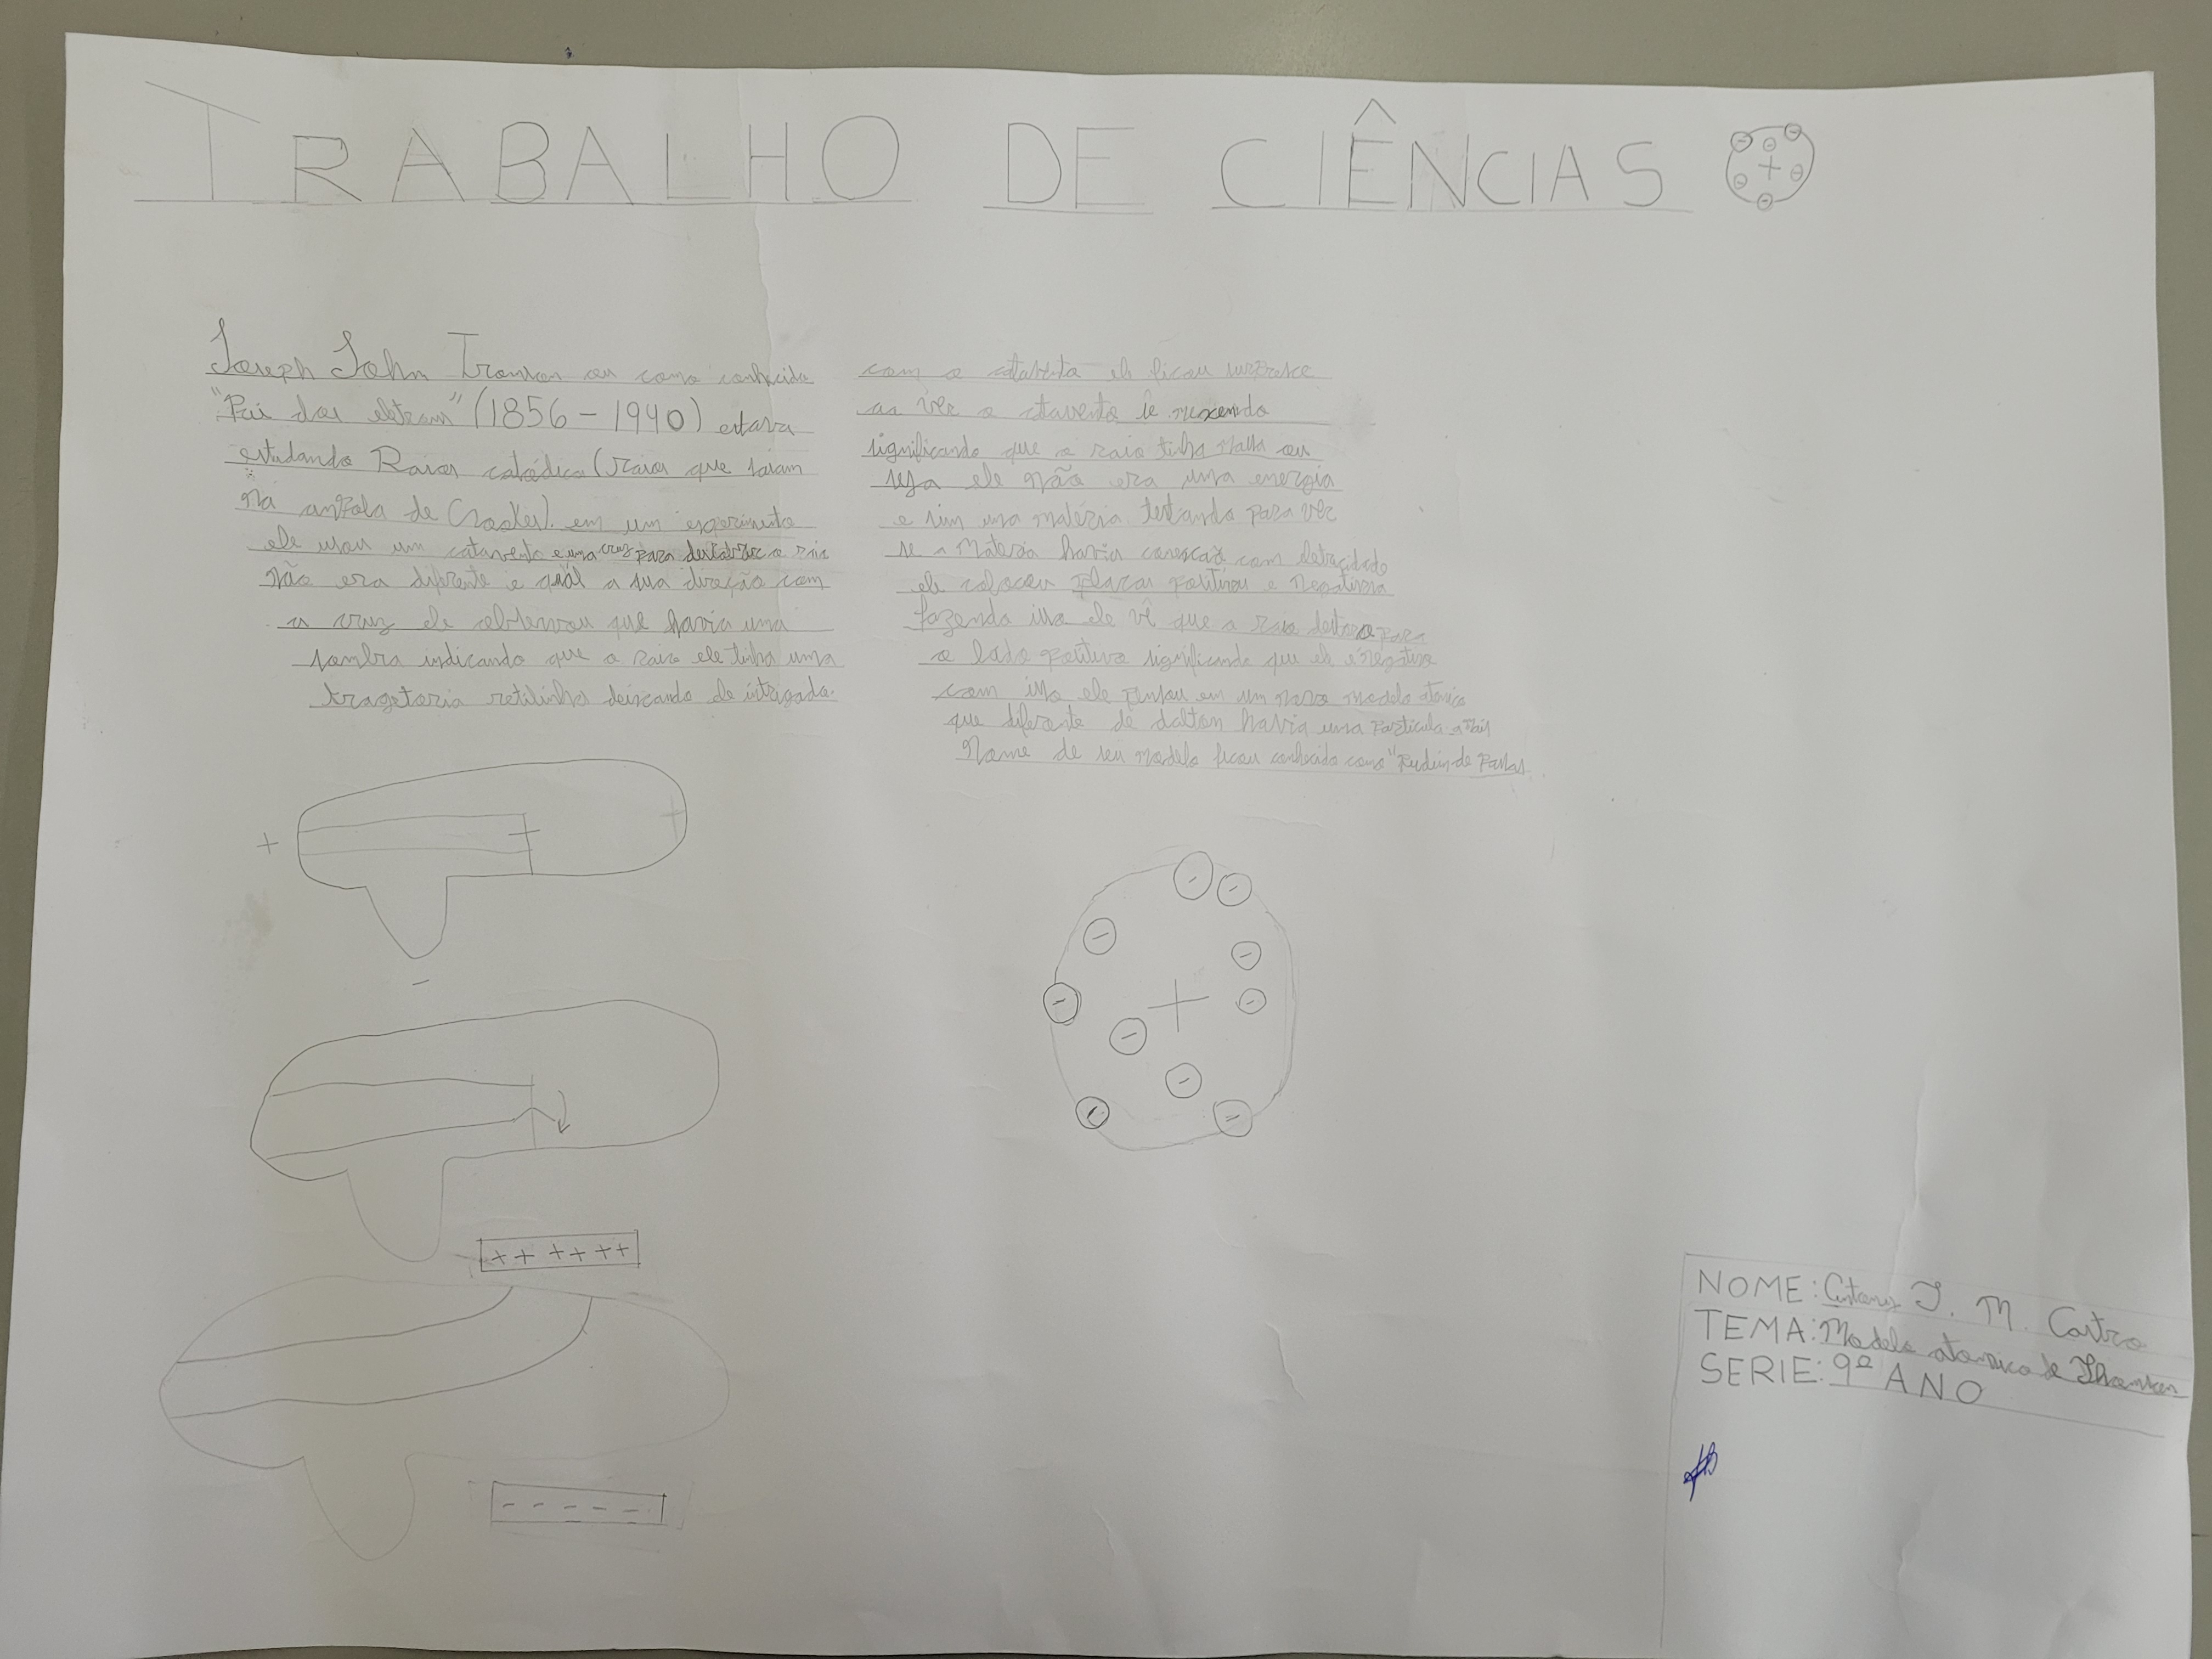 TRABALHO DE CIÊNCIAS
Joseph John Tromson ou como conhecido
"Pai dos eletrons" (1856-1940) estava
estudando Raios catódico (raios que saiam
na ampola de Crookes). em um experimento
ele usou um catavento e uma cruz para destabrir o raio
não era diferente e quál a sua direção com
a cruz ele observou que havia uma
sombra indicando que o raio ele tinha uma
tragetoria retilinha deixando ele intrigado.
com o catavento ele ficou surpreso
ao ver o catavento se mexendo
significando que o raio tinha massa ou
seja ele não era uma energia
e sim uma matéria testando para ver
se a materia havia conexção com eletricidade
ele colocou placas positivas e negativas
fazendo isso ele vê que o raio destroe para
o lado positivo significando que ele é negativo
com isso ele pensou em um novo modelo atômico
que diferente de dalton havia uma particula a mais
Nome de seu modelo ficou conhecido como "Pudim de Passas
+
-
++ ++ ++
- - - - -
+
- - - - - - - - - -
NOME: J. M. Castro
TEMA: Modelo atomico de Thomson
SERIE: 9º ANO